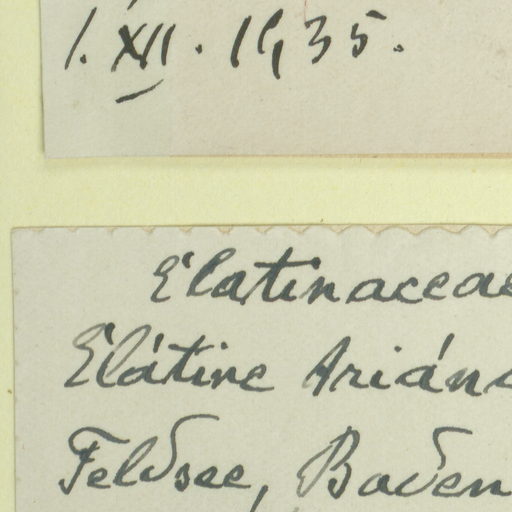 1. XII. 1935.
Elatinaceae
Elátine Ariána
Feldsee, Baden